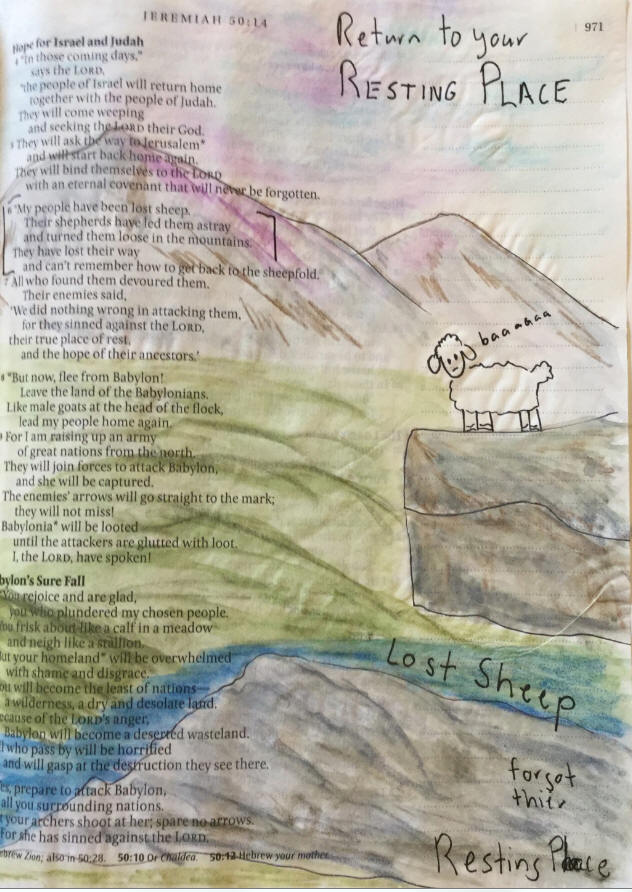 JEREMIAH 50:14
971
Return to your
RESTING PLACE
Hope for Israel and Judah
4 "In those coming days,"
says the LORD,
"the people of Israel will return home
together with the people of Judah.
They will come weeping
and seeking the LORD their God.
5 They will ask the way to Jerusalem*
and will start back home again.
They will bind themselves to the LORD
with an eternal covenant that will never be forgotten.
6 "My people have been lost sheep.
Their shepherds have led them astray
and turned them loose in the mountains.
They have lost their way
and can't remember how to get back to the sheepfold.
7 All who found them devoured them.
Their enemies said,
'We did nothing wrong in attacking them,
for they sinned against the LORD,
their true place of rest,
and the hope of their ancestors.'
baaaaaa
8 "But now, flee from Babylon!
Leave the land of the Babylonians.
Like male goats at the head of the flock,
lead my people home again.
9 For I am raising up an army
of great nations from the north.
They will join forces to attack Babylon,
and she will be captured.
The enemies' arrows will go straight to the mark;
they will not miss!
Babylonia* will be looted
until the attackers are glutted with loot.
I, the LORD, have spoken!
bylon's Sure Fall
"You rejoice and are glad,
you who plundered my chosen people.
You frisk about like a calf in a meadow
and neigh like a stallion.
ut your homeland* will be overwhelmed
with shame and disgrace.
ou will become the least of nations—
a wilderness, a dry and desolate land.
ecause of the LORD's anger,
Babylon will become a deserted wasteland.
l who pass by will be horrified
and will gasp at the destruction they see there.
es, prepare to attack Babylon,
all you surrounding nations.
t your archers shoot at her; spare no arrows.
For she has sinned against the LORD.
Lost Sheep
forgot
thier
Resting Place
ebrew Zion; also in 50:28. 50:10 Or Chaldea. 50:12 Hebrew your mother.